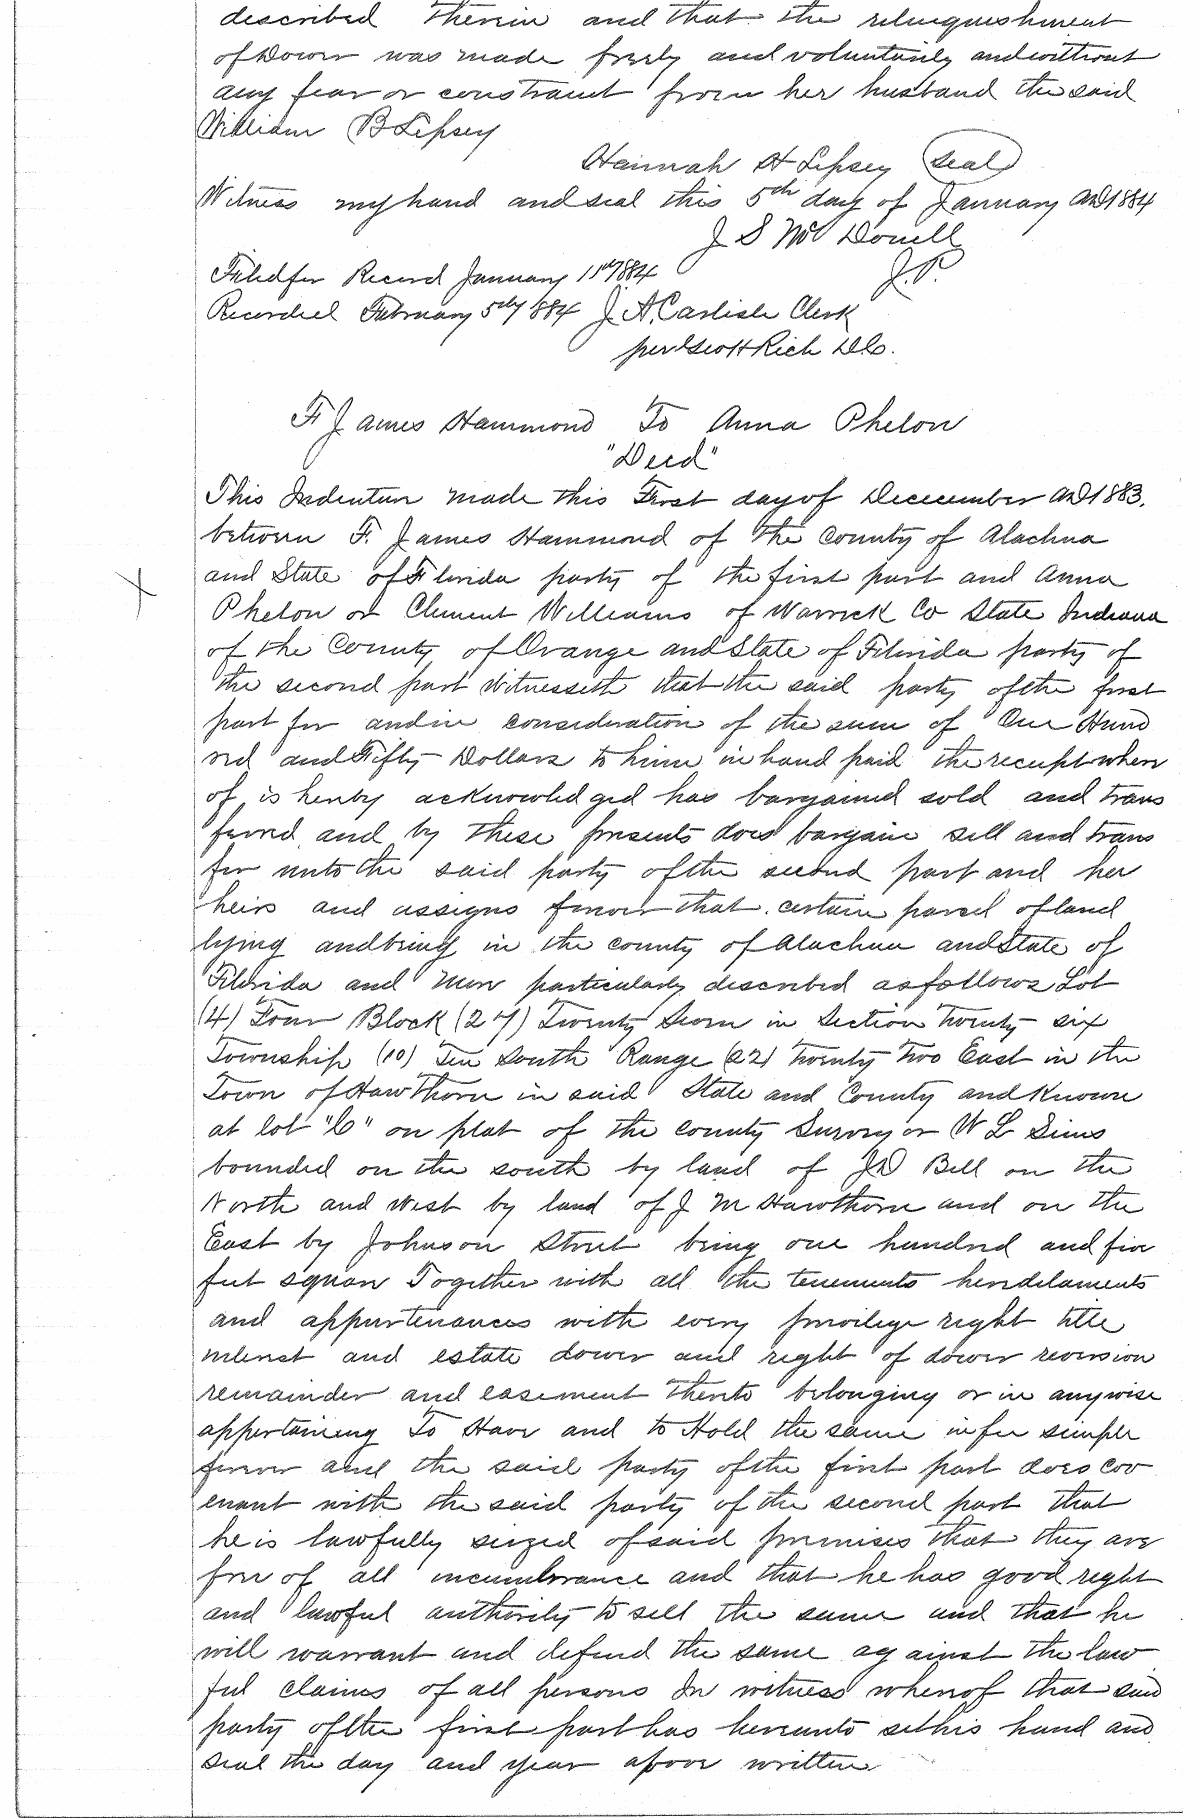 described therein and that the relinquishment
of Dower was made freely and voluntarily and without
any fear or constraint from her husband the said
William B Lipsey
Hannah H Lipsey seal
Witness my hand and seal this 5th day of January AD 1884
J S McDonell
J.P.
Filed for Record January 11th 1884
Recorded February 5th 1884 J. A. Carlisle Clerk
per Scott Rich D.C.
F James Hammond To Anna Phelon
"Deed"
This Indenture made this First day of Dececember AD 1883.
between F. James Hammond of the County of Alachua
and State of Florida party of the first part and Anna
Phelon or Clement Williams of Warrick Co State Indiana
of the County of Orange and State of Florida party of
the second part Witnesseth that the said party of the first
part for and in consideration of the sum of One Hund
red and Fifty Dollars to him in hand paid the receipt where
of is hereby acknowledged has bargained sold and trans
fered and by these presents does bargain sell and trans
fer unto the said party of the second part and her
heirs and assigns forever that certain parcel of land
lying and being in the county of Alachua and State of
Florida and more particularly described as follows Lot
(4) Four Block (27) Twenty Seven in Section Twenty six
Township (10) Ten South Range (22) Twenty Two East in the
Town of Hawthorn in said State and County and Known
at lot "C" on plat of the county Survey or W L Sims
bounded on the south by land of J D Bell on the
North and West by land of J M Hawthorn and on the
East by Johnson Street being one hundred and five
feet square Together with all the tenements herediaments
and appurtenances with every privilege right title
interest and estate dower and right of dower reversion
remainder and easement thereto belonging or in anywise
appertaining To Have and to Hold the same in fee simple
forever and the said party of the first part does cov
enant with the said party of the second part that
he is lawfully seized of said premises that they are
free of all incumbrance and that he has good right
and lawful authority to sell the same and that he
will warrant and defend the same against the law
ful claims of all persons In witness whereof that said
party of the first part has hereunto set his hand and
seal the day and year above written